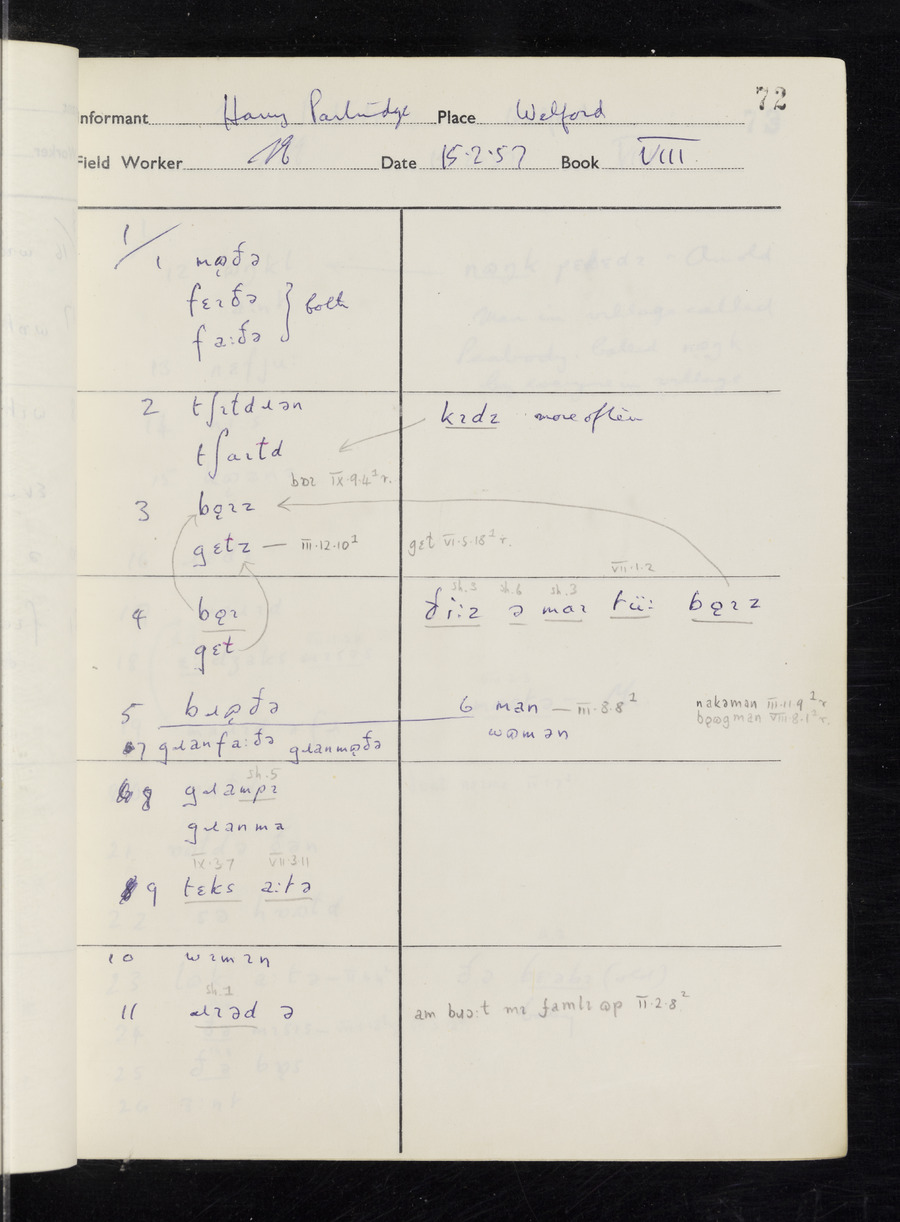 72
Informant Harry Partridge Place Welford
Field Worker Date 15·2·57 Book VIII
1/
1 mɒ̨ðə
fɛɪðə } both
fa:ðə
2 tʃɪɫdɹən kɪdz more often
tʃaɪɫd
bɒɪ IX·9·4¹ r.
3 bǫɪz
gɛtz — III·12·10¹ gɛt VI·5·18¹ r.
VII·1·2
sh.3 sh.6 sh.3
4 bǫɪ ði:z ə maɪ tü: bǫɪz
gɛt
5 bɹɒ̨ðə 6 man — III·8·8² nakəman III·11·9¹ r.
wɒmən bɒ̨gman VIII·8·1¹ r.
7 gɹanfa:ðə gɹanmɒ̨ðə
sh.5
8 gɹampɪ
gɹanma
IX·3·7 VII·3·11
9 tɛks a:tə
10 wɪmɪn
sh.1
11 ɹɪəd ə am bɹɔ:t mɪ famlɪ ɒp II·2·8²